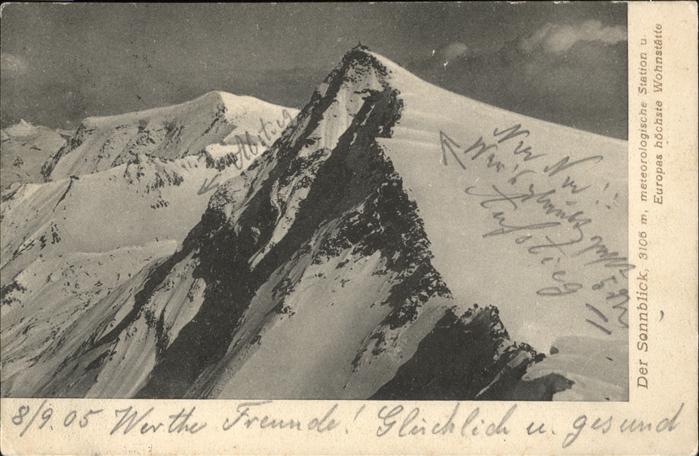 Der Sonnblick, 3106 m, meteorologische Station u.
Europas höchste Wohnstätte
Abstieg
Aufstieg
8/9. 05 Werthe Freunde! Glücklich u. gesund